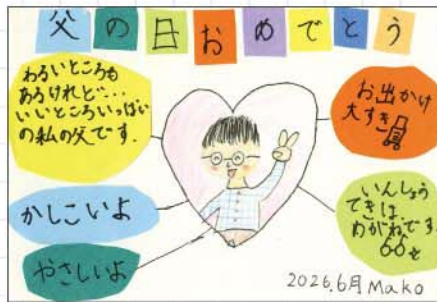 父の日おめでとう
わるいところも
あるけれど…
いいところいっぱい
の私の父です.
お出かけ
大すき
かしこいよ
やさしいよ
いんしょう
てきは、
めがねです。
2026.6月 Mako